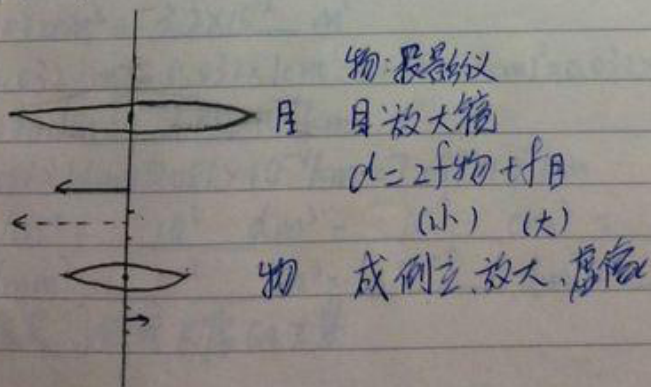 物:投影仪
目 目:放大镜
d=2f物+f目
(小) (大)
物 成倒立、放大、虚像